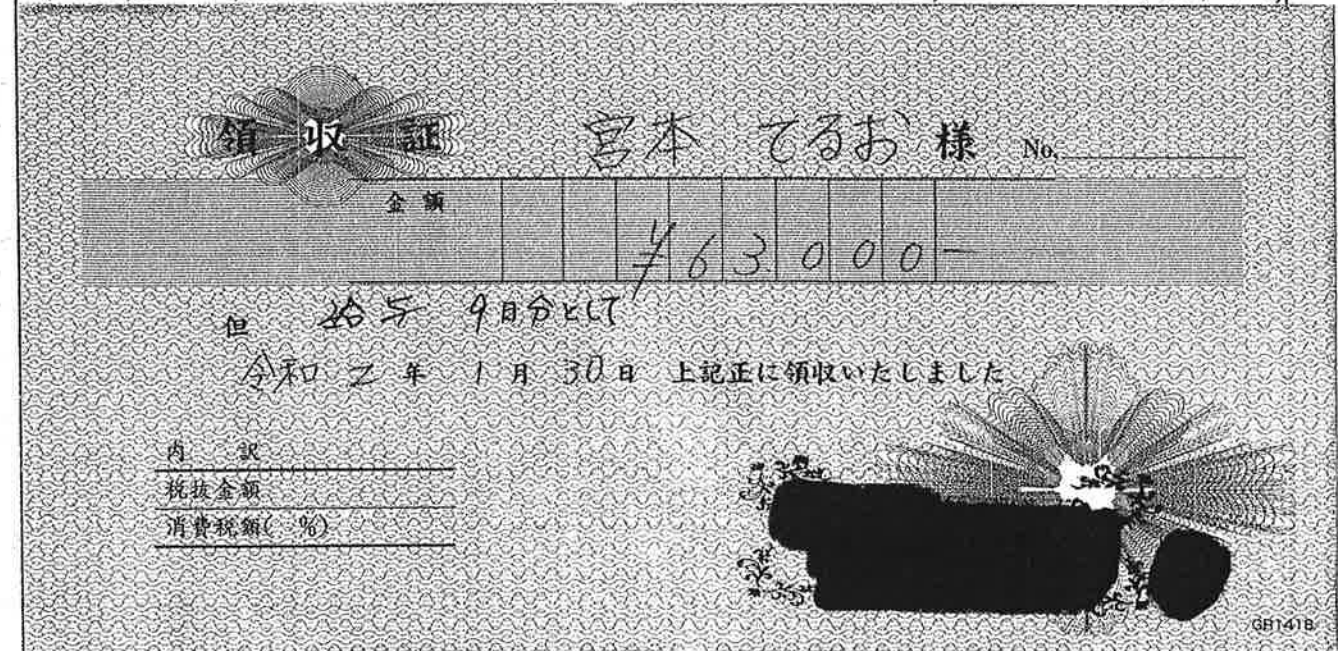 領収証 宮本 てるお 様 No.
金額 ¥63000-
但 給与 9日分として
令和 2年 1月 30日 上記正に領収いたしました
内訳
税抜金額
消費税額( %)
GR1418